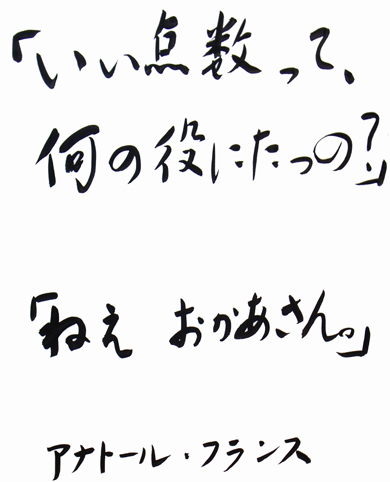 「いい点数って、
何の役にたつの？」
「ねえ　おかあさん。」
アナトール・フランス